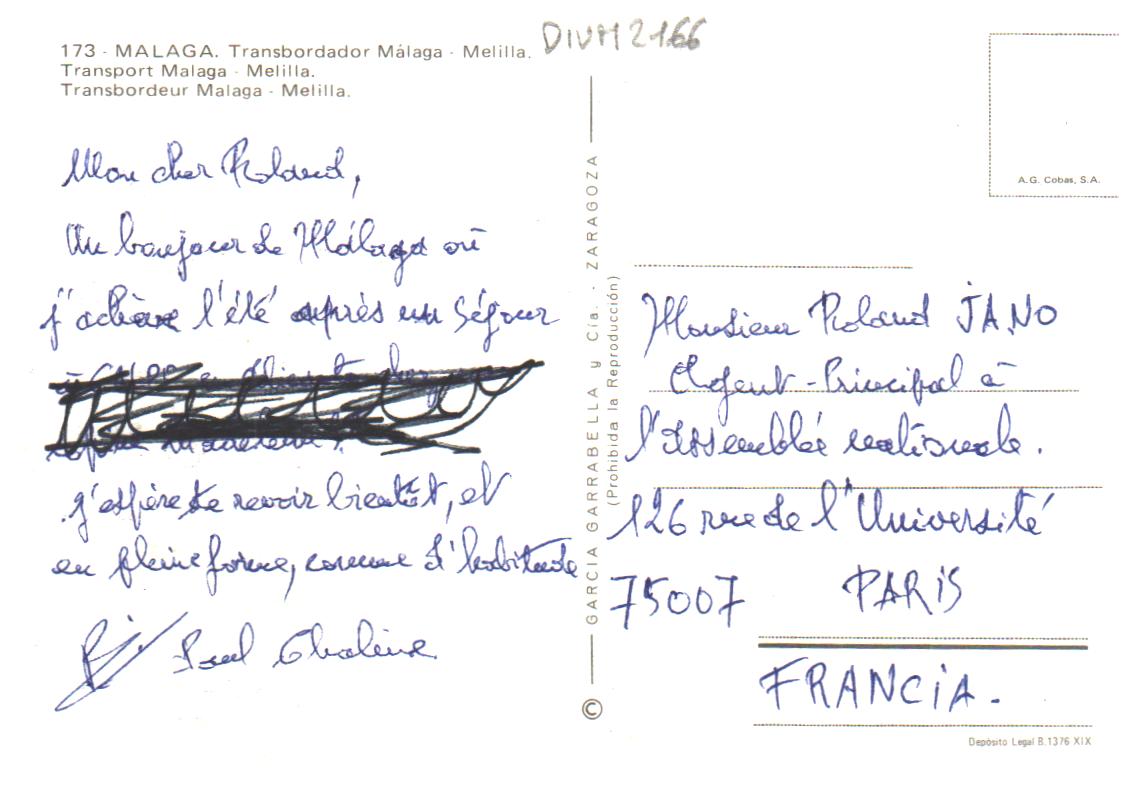 DIVM2166
173 - MALAGA. Transbordador Málaga - Melilla.
Transport Malaga - Melilla.
Transbordeur Malaga - Melilla.
Mon cher Roland,
Un bonjour de Málaga où
j'achève l'été après un séjour
j'espère te revoir bientôt, et
en pleine forme, comme d'habitude
Paul
GARCIA GARRABELLA y Cía. - ZARAGOZA
(Prohibida la Reproducción)
©
A.G. Cobas, S.A.
Monsieur Roland JANO
Agent-Principal à
l'Assemblée nationale.
126 rue de l'Université
75007 PARIS
FRANCIA.
Depósito Legal B.1376 XIX